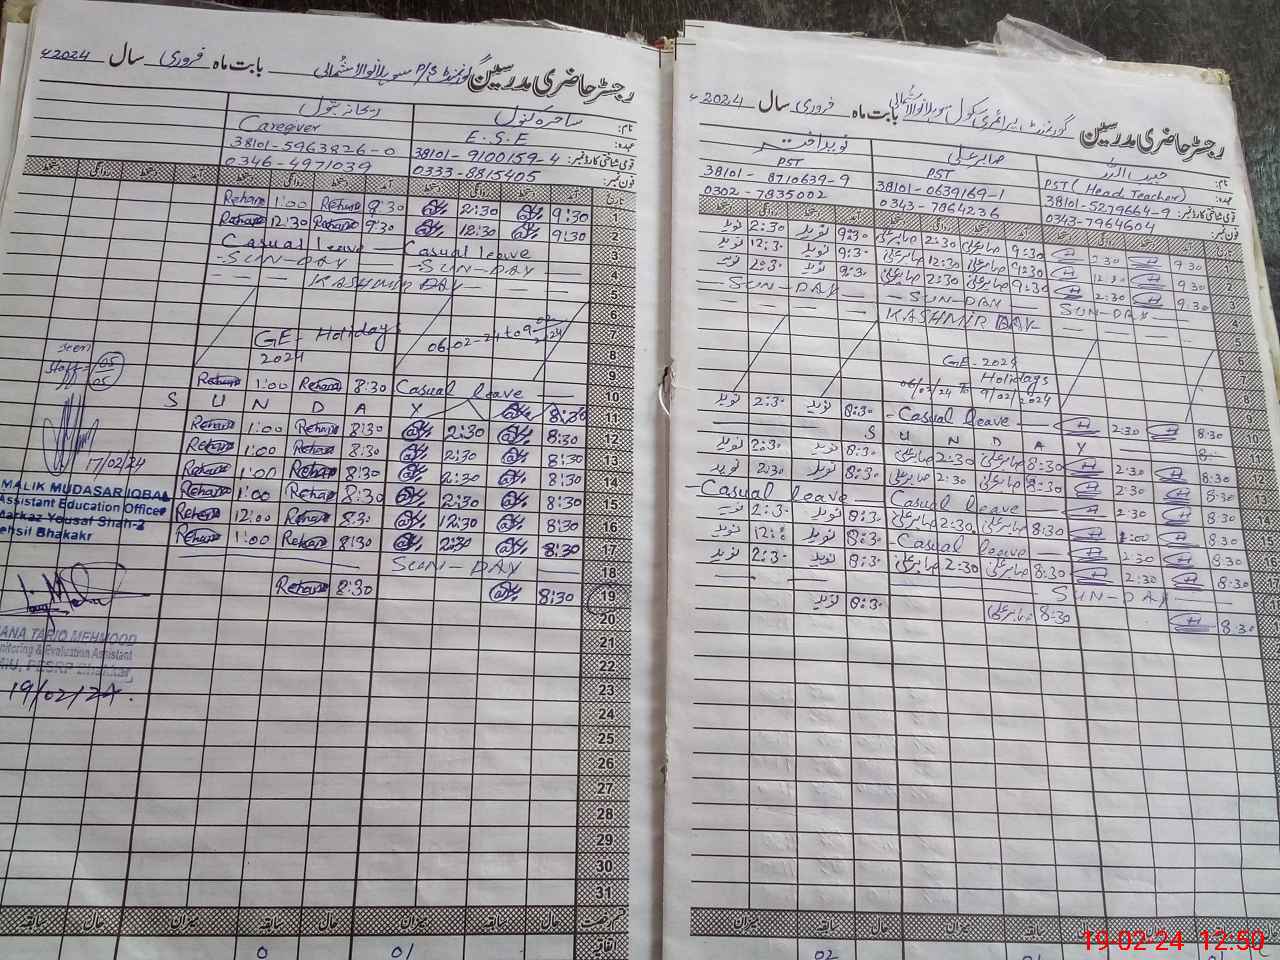 رجسٹر حاضری مدرسین گورنمنٹ P/S سہیلانوالا شمالی بابت ماہ فروری سال 2024ء
نام: ساحرہ کنول ریحانہ بتول
عہدہ: E.S.E Caregiver
قومی شناختی کارڈ نمبر: 38101-9100159-4 38101-5963826-0
فون نمبر: 0333-8815405 0346-4971039
تاریخ آمد دستخط روانگی دستخط آمد دستخط روانگی دستخط
1 9:30 2:30 9:30 Rehana 1:00 Rehana
2 9:30 12:30 9:30 Rehana 12:30 Rehana
3 Casual leave Casual leave
4 - SUN-DAY - SUN-DAY
5 KASHMIR DAY
6
7 GE- Holidays 06-02-24 to 9-02-24
8 2024
9
10 Casual leave 8:30 Rehana 1:00 Rehana
11 S U N D A Y 8:30
12 8:30 2:30 8:30 Rehana 1:00 Rehana
13 8:30 2:30 8:30 Rehana 1:00 Rehana
14 8:30 2:30 8:30 Rehana 1:00 Rehana
15 8:30 2:30 8:30 Rehana 1:00 Rehana
16 8:30 12:30 8:30 Rehana 12:00 Rehana
17 8:30 2:30 8:30 Rehana 1:00 Rehana
18 SUN-DAY
19 8:30 8:30 Rehana
20
21
22
23
24
25
26
27
28
29
30
31
حال سابقہ میزان حال سابقہ میزان
01 0
seen
staff = 05/05
17/02/24
MALIK MUDASAR IQBAL
Assistant Education Officer
Markaz Yousaf Shah-2
Tehsil Bhakakr
RANA TARIQ MEHMOOD
Monitoring & Evaluation Assistant
19/02/24.
رجسٹر حاضری مدرسین گورنمنٹ پرائمری سکول سہیلانوالا شمالی بابت ماہ فروری سال 2024ء
نام: صابر علی نوید اختر
عہدہ: PST (Head Teacher) PST PST
قومی شناختی کارڈ نمبر: 38101-5279664-9 38101-0639169-1 38101-8710639-9
فون نمبر: 0343-7964604 0343-7864236 0302-7835002
1 9:30 2:30 9:30 صابر علی 2:30 صابر علی 9:30 نوید 2:30 نوید
2 9:30 12:30 9:30 صابر علی 12:30 صابر علی 9:30 نوید 12:30 نوید
3 9:30 2:30 9:30 صابر علی 2:30 صابر علی 9:30 نوید 2:30 نوید
4 SUN-DAY - SUN-DAY - SUN-DAY
5 KASHMIR DAY
6
7 GE-2024
8 Holidays
9 06/02/24 To 9/02/2024
10 8:30 2:30 - Casual leave 8:30 نوید 2:30 نوید
S U N D A Y
12 8:30 2:30 8:30 صابر علی 2:30 صابر علی 8:30 نوید 2:30 نوید
13 8:30 2:30 8:30 صابر علی 2:30 صابر علی 8:30 نوید 2:30 نوید
14 8:30 2:30 Casual leave - Casual leave
15 8:30 1:00 8:30 صابر علی 2:30 صابر علی 8:30 نوید 2:30 نوید
16 8:30 2:30 - Casual leave 8:30 نوید 12:00 نوید
17 8:30 2:30 8:30 صابر علی 2:30 صابر علی 8:30 نوید 2:30 نوید
SUN-DAY
8:30 8:30 صابر علی 8:30 نوید
حال سابقہ میزان حال سابقہ میزان
02
19-02-24 12:50